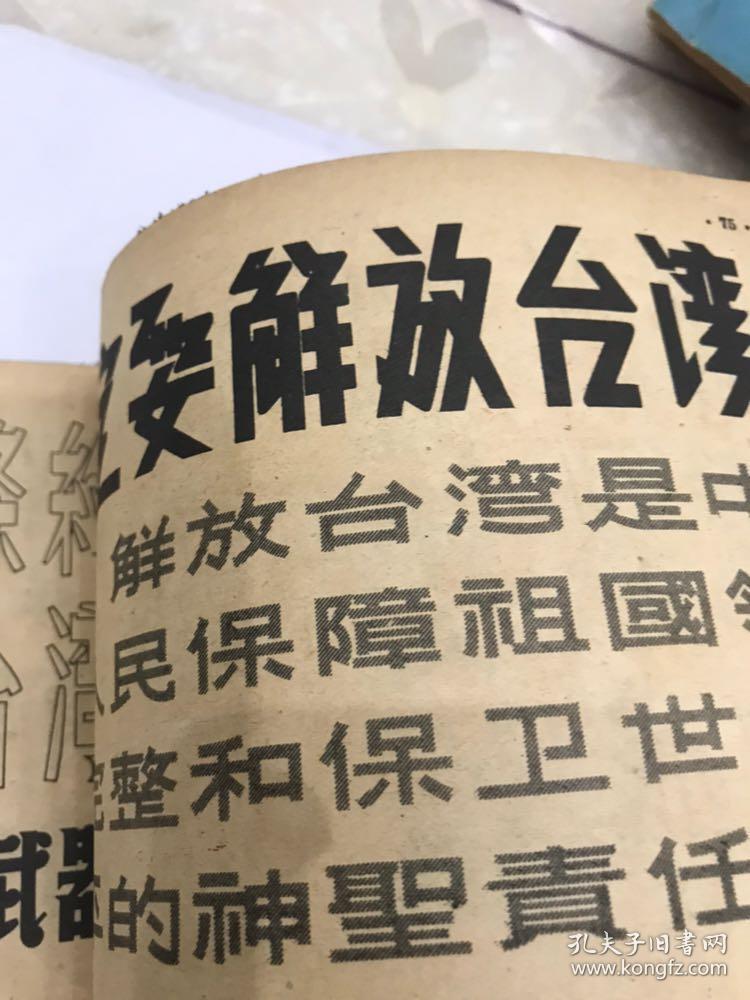 ·75·
要解放台湾
解放台湾是中
民保障祖國
整和保卫世
的神聖責任
武器
孔夫子旧書网
www.kongfz.com